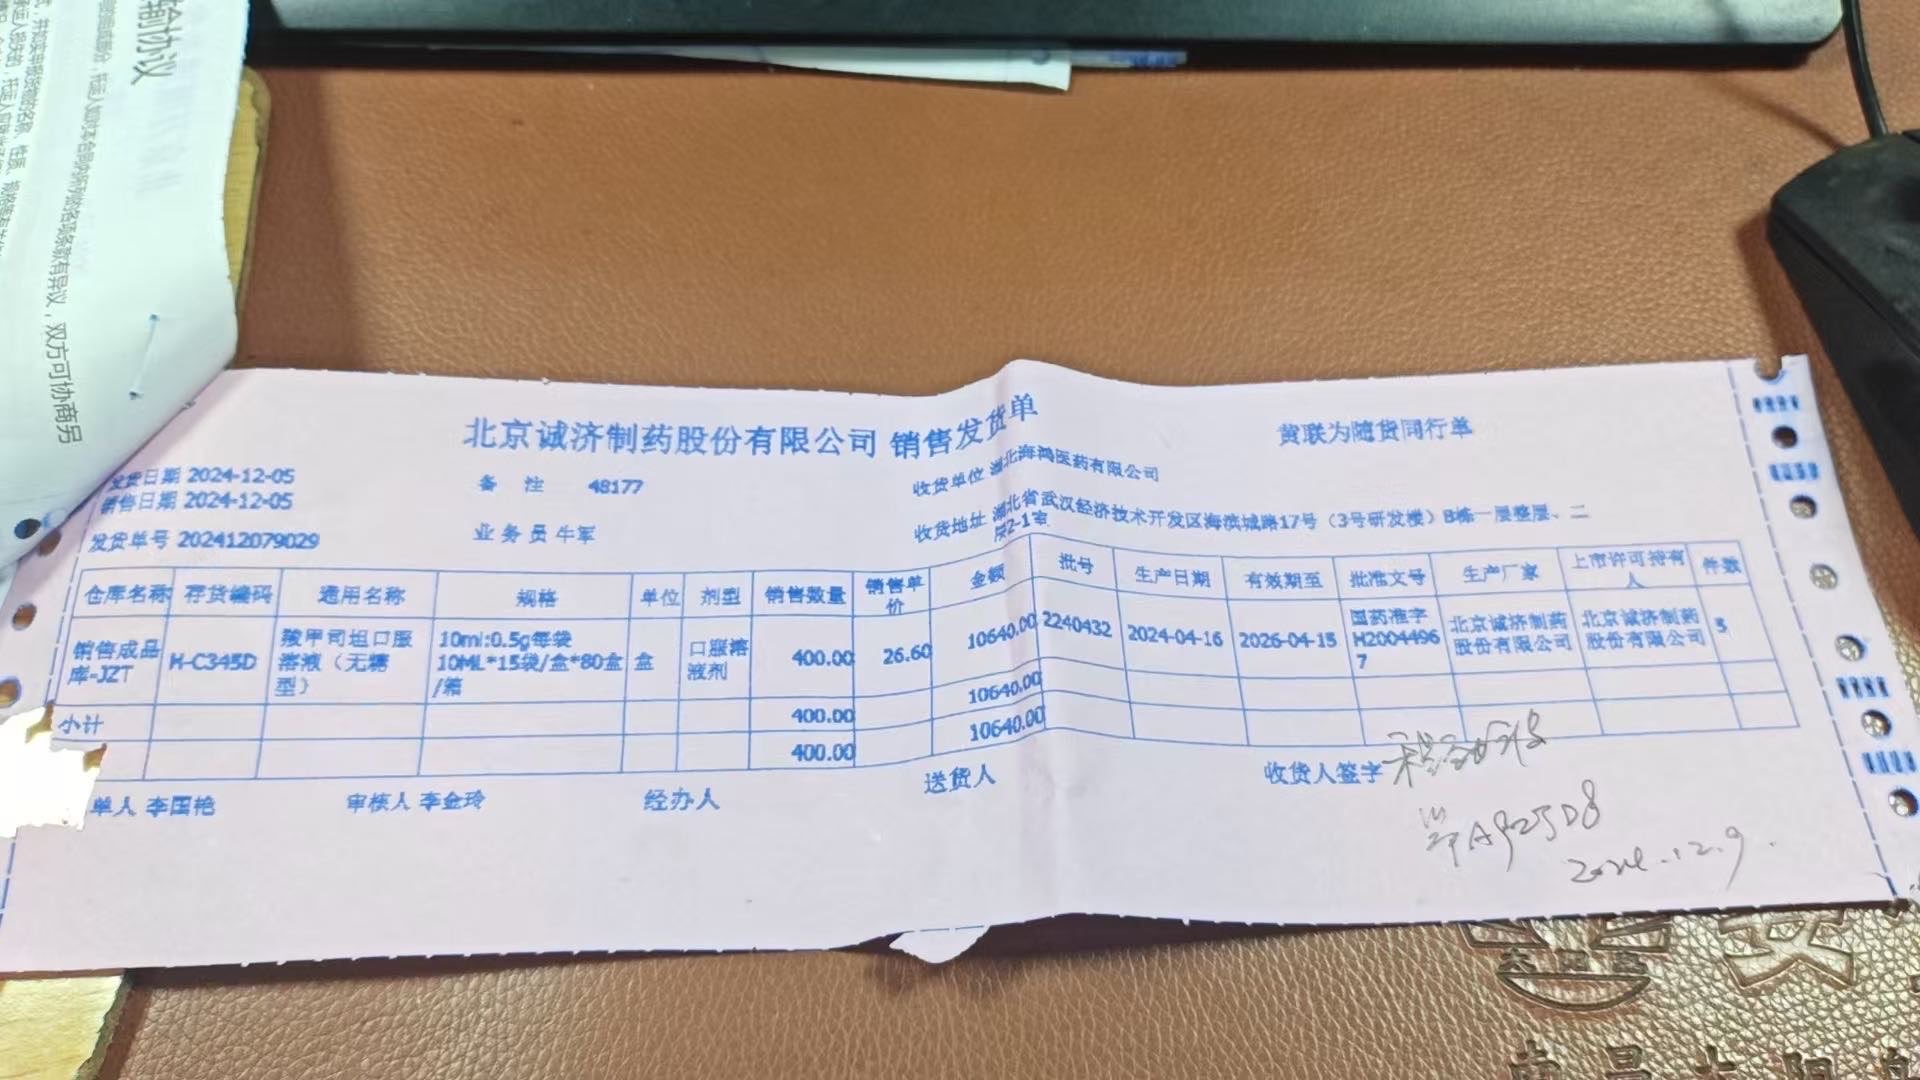 输协议
双方可协商另
北京诚济制药股份有限公司 销售发货单
黄联为随货同行单
发货日期 2024-12-05
备 注 48177
收货单位 湖北海鸿医药有限公司
销售日期 2024-12-05
发货单号 202412079029
业务员 牛军
收货地址 湖北省武汉经济技术开发区海滨城路17号（3号研发楼）B栋一层整层、二
层2-1室
仓库名称 存货编码 通用名称 规格 单位 剂型 销售数量 销售单价 金额 批号 生产日期 有效期至 批准文号 生产厂家 上市许可持有人 件数
销售成品库-JZT H-C345D 羧甲司坦口服溶液（无糖型） 10ml:0.5g每袋 10ML*15袋/盒*80盒/箱 盒 口服溶液剂 400.00 26.60 10640.00 2240432 2024-04-16 2026-04-15 国药准字H20044967 北京诚济制药股份有限公司 北京诚济制药股份有限公司 5
小计 400.00 10640.00
400.00 10640.00
单人 李国艳 审核人 李金玲 经办人 送货人 收货人签字
2024.12.9.